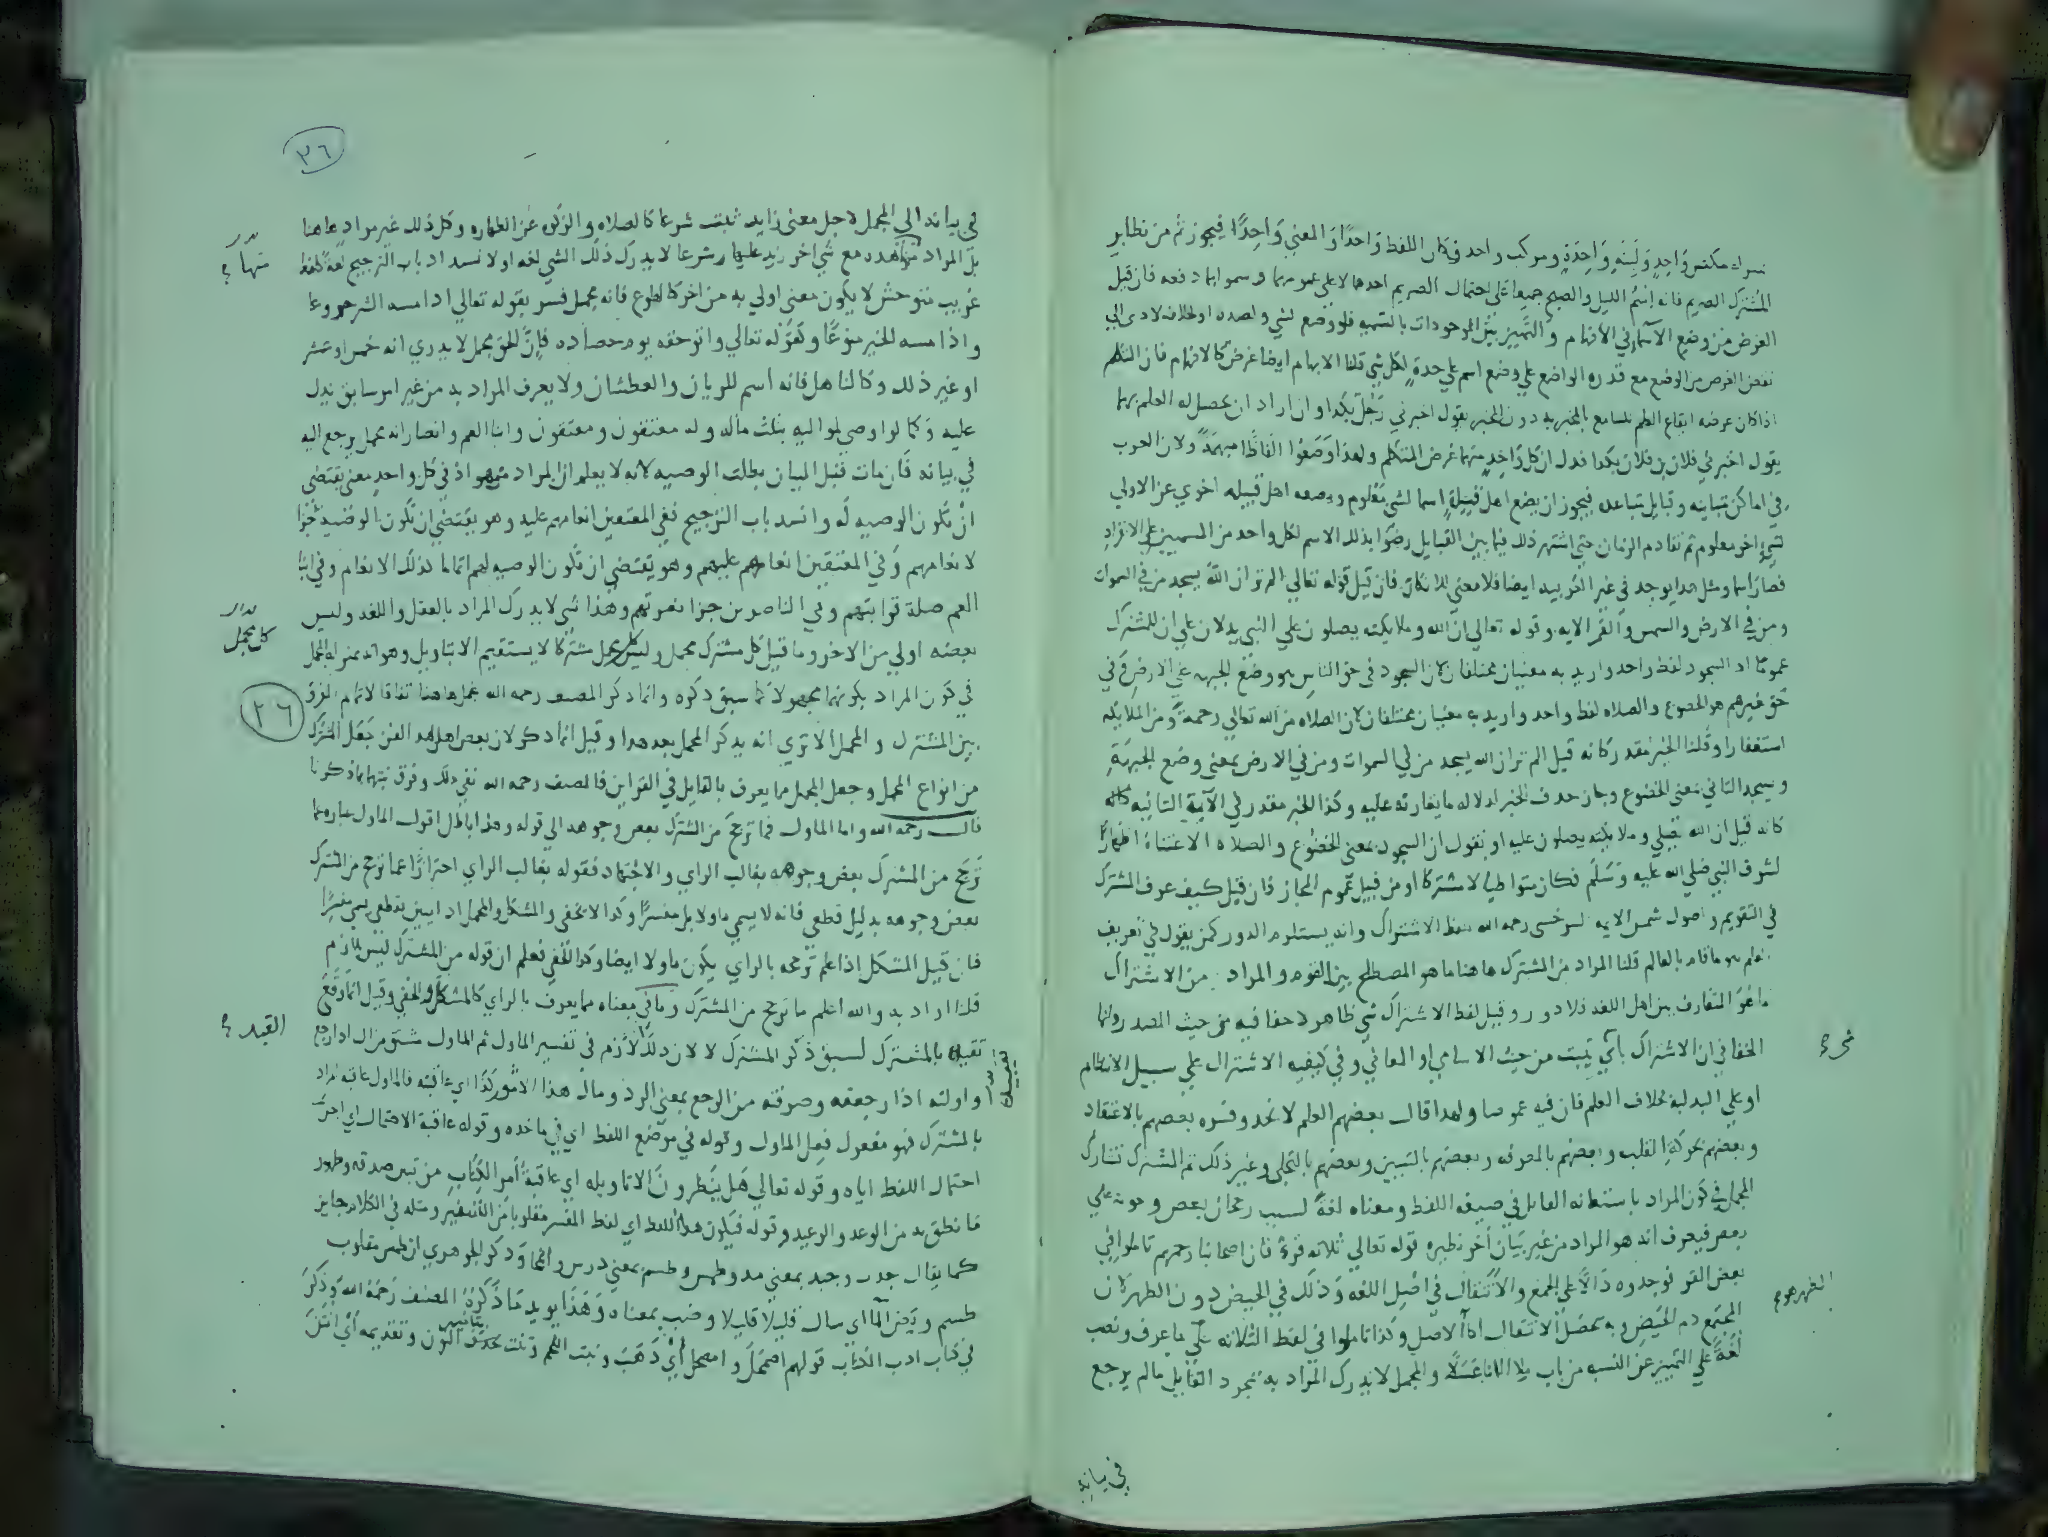 واحدٍ وَلَبِنَةٍ وَاحِدَةٍ ومركب واحد وكان اللفظ وَاحدًا وَ المعني وَاحِدًا فيجوز ثم من نظاير
المُشترك الصريم فانه اِسْمُ الليل والصبح جميعا على احتمال الصريم احدهما لا على عمومهما فان قيل
الغرض من وضع الاسماء في الافهام والتمييز بين الموجودات بالتسميه فلو وضع لشي ولضده او لخلافه لادى الى
نقض الغرض من الوضع مع قدره الواضع علي وضع اسم علي حدةٍ لكل شي قلنا الابهام ايضا غرض كالافهام فان المتكلم
اذا كان غرضه ايقاع العلم للسامع بالمخبر به دون المخبر يقول اخبرني رَجُل بكذا وان اراد ان يحصل له العلم بهما
يقول اخبرني فلان بن فلان بكذا فدل ان كل وَاحِدٍ منهما غرض المتكلم ولهذا وَضَعُوا الفاظًا مبهمَةً ولان العرب
في اماكن متباينه وقبايل متباعده فيجوز ان يضع اهل قبيلةٍ اسما لشي مَعْلوم ويضعه اهل قبيله اخري غير الاولي
لشيءٍ اخر معلوم ثم تقادم الزمان حتي اشتهر ذلك فيما بين القبايل رضوا بذلك الاسم لكل واحد من المسميين علي الانفراد
فان قيل قوله تعالي الم تر ان اللَّه يسجد له من في السموات
ومن في الارض والشمس والقمر الايه وقوله تعالي ان اللَّه وملايكته يصلون علي النبي يدلان علي ان للمشترك
عمومًا اذ السجود لفظ واحد واريد به معنيان مختلفان لان السجود في حق الناس هو وضع الجبهه علي الارض وفي
حق غيرهم هو الخضوع والصلاه لفظ واحد واريد به معنيان مختلفان لان الصلاه من اللَّه تعالي رحمةٌ ومن الملايكه
استغفارا وقلنا الخبر مقدر كانه قيل الم تر ان اللَّه يسجد من في السموات ومن في الارض بمعني وضع الجبهَةِ
ويسجد الثاني بمعني الخضوع وجاز حذف الخبر لدلاله ما يقارنه عليه وكذا الخبر مقدر في الآية الثانيه
كانه قيل ان اللَّه يُصلي وملايكته يصلون عليه او نقول ان السجود بمعني الخضوع والصلاة الاعتناءُ اظهارًا
لشرف النبي صَلي اللَّه عليه وَسَلّمَ فكان متواطيًا لا مشتركا او من قبيل عموم المجاز فان قيل كيف عرف المشترك
في التقويم واصول شمس الايمه السرخسي رحمه اللَّه بلفظ الاشتراك وانه يستلزم الدور كمن يقول في تعريف
العلم هو ما قام بالعالم قلنا المراد من المشترك هاهنا ما هو المصطلح بين القوم والمراد من الاشتراك
ما هو المتعارف بين اهل اللغه فلا دور وقيل لفظ الاشتراك شي ظاهر لا خفا فيه من حيث المصدر وانما
الخفا في ان الاشتراك بايّ يثبت من حيث الاسامي او المعاني وفي كيفيه الاشتراك علي سبيل الانتظام
او علي البدليه بخلاف العلم فان فيه غموضا ولهذا قال بعضهم العلم لا يحد وفسره بعضهم بالاعتقاد
وبعضهم بحركة القلب وبعضهم بالمعرفه وبعضهم بالتبيين وبعضهم بالتجلي وغير ذلك ثم المشترك تشارك
المجمل في كون المراد باستعانه القايل في صيغه اللفظ ومعناه لغةً لسبب رجحان بعض وجوهه علي
بعض فيعرف انه هو المراد من غير بَيَان اخر نظيره قوله تعالي ثلاثه قروءٍ فان اصحابنا رحمهم تاملوا في
بعض القرو فوجدوه دَالًا علي الجمع والانتقال في اصْل اللغه وَذلك في الحيض دون الطهر لان
المجتمع دم الحيض وبه يحصل الانتقال الاصل وكذا تاملوا في لفظ الثلاثه علي ما عرف ونصب
لغةً علي التمييز عن النسبه من باب ملا الانا عَسَلًا والمجمل لا يدرك المراد به بمجرد القايل مالم يرجع
شرح
الطهر هو
في بيانه
٣٦
في بيانه الي المجمل لاجل معنى زايد ثبت شرعا كالصلاه والزكوه غير الطهاره وكل ذلك غير مراد هاهنا
بل المراد مع شي اخر زيد عليها شرعا لا يدرك ذلك الشي لغه او لانسداد باب الترجيح لغةً كلفظ
غريب متوحش لا يكون معنى اولي به من اخر كالهلوع فانه مجمل فسر بقوله تعالي اذا مسه الشر جزوعا
واذا مسه الخير منوعًا وكقَوْله تعالي واتو حقه يوم حصاده فإنَّ الحق مجمل لا يدري انه خمس او عشر
او غير ذلك وكالناهل فانه اسم للريان والعطشان ولا يعرف المراد به من غير امر سابق يدل
عليه وَكما لو اوصي لمواليه بثلث ماله وله معتقون ومعتقون وابنا العم وانصار انه مجمل يرجع اليه
في بيانه فَان مات قبل البيان بطلت الوصيه لانه لا يعلم ان المراد منهم اذ في كل واحدٍ معني يقتضي
انْ تَكون الوصيه لَه وانسد باب الترجيح ففي المعتقين انعامهم عليه وهو يقتضي ان تَكون الوصية جَزا
لانعامهم وَفي المعتقين انعامه عليهم وهو يقتضي ان تكون الوصيه لهم اتماما لذلك الانعام وفي ابنا
العم صلة قرابتهم وفي الناصرين جزا نصرتهم وهذا شي لا يدرك المراد بالعقل واللغه وليس
بعضه اولي من الاخر وما قيل كل مشترك مجمل وليس كل مجمل مشتركا لا يستقيم الا بتاويل وهو انه بمنزله المجمل
في كون المراد بكونهما مجهولا كما سبق ذكره وانما ذكر المصنف رحمه اللَّه مجملا هاهنا اتفاقا لاتمام الفرق
بين المشترك والمجمل الا تري انه يذكر المجمل بعد هذا وقيل انما ذكر لان بعض اهل هذا الفن جَعَل المشترك
من انواع المجمل وجعل المجمل مما يعرف بالتامل في القراين فالمصنف رحمه اللَّه نفي ذلك وفرق بينهما بما ذكرنا
قال رحمه اللَّه واما الماول فما ترجح من المشترك بعض وجوهه الى قوله وهذا باطل اقول الماول عباره عما
ترجح من المشترك بعض وجوهه بغالب الراي والاجتهاد فقوله بغالب الراي احترازًا عما ترجح من المشترك
بعض وجوهه بدليل قطعي فانه لا يسمي ماولا بل مفسرًا وكذا الخفي والمشكل والمجمل اذا بين بقطعي يسمي مفسرًا
فان قيل المشكل اذا علم ترجحه بالراي يكون ماولا ايضا وكذا الخفي فعلم ان قوله من المشترك ليس بلازم
قلنا اراد به واللَّه اعلم ما ترجح من المشترك وما في معناه مما يعرف بالراي كالمشكل والخفي وقيل انما وقع
تقييده بالمشترك لسبق ذكر المشترك لا لان ذلك لازم في تفسير الماول ثم الماول مشتق من ال اذا رجع
واولته اذا رجعته وصرفته من الرجع بمعني الرد ومال هذا الامر كَذا اي عاقبته فالماول عاقبه المراد
بالمشترك فهو مفعول فعل الماول وقوله في موضع اللفظ اي في ماخذه وقوله عاقبة الاحتمال اي اخر
احتمال اللفظ اياه وقوله تعالي هَل ينظرون الا تاويله اي عاقبة أمر الكِتَاب من تبين صدقه وظهور
ما نطق به من الوعد والوعيد وقوله فيكون هذا اللفظ اي لفظ المفسر مقلوبا من التسفير ومثله في الكلام جايز
كما يقال جذب وجبذ بمعني مد وطمس وطسم بمعني درس وانمحا وَذكر الجوهري ان طمس مقلوب
طسم وبض الما اي سال قليلا قليلا وضب بمعناه وَهَذا يويد مَا ذَكرَهُ المصنف رَحمَهُ اللَّه وَذكرَ
في كتاب ادب الكتاب قولهم اضمَحَل وَامضحل أيْ ذَهَبَ ونبت اللحم وثنت بتاخير النون وتقديمه أي أنتَنَ
منها
كل مجمل
٢٦
القيد
تقييده